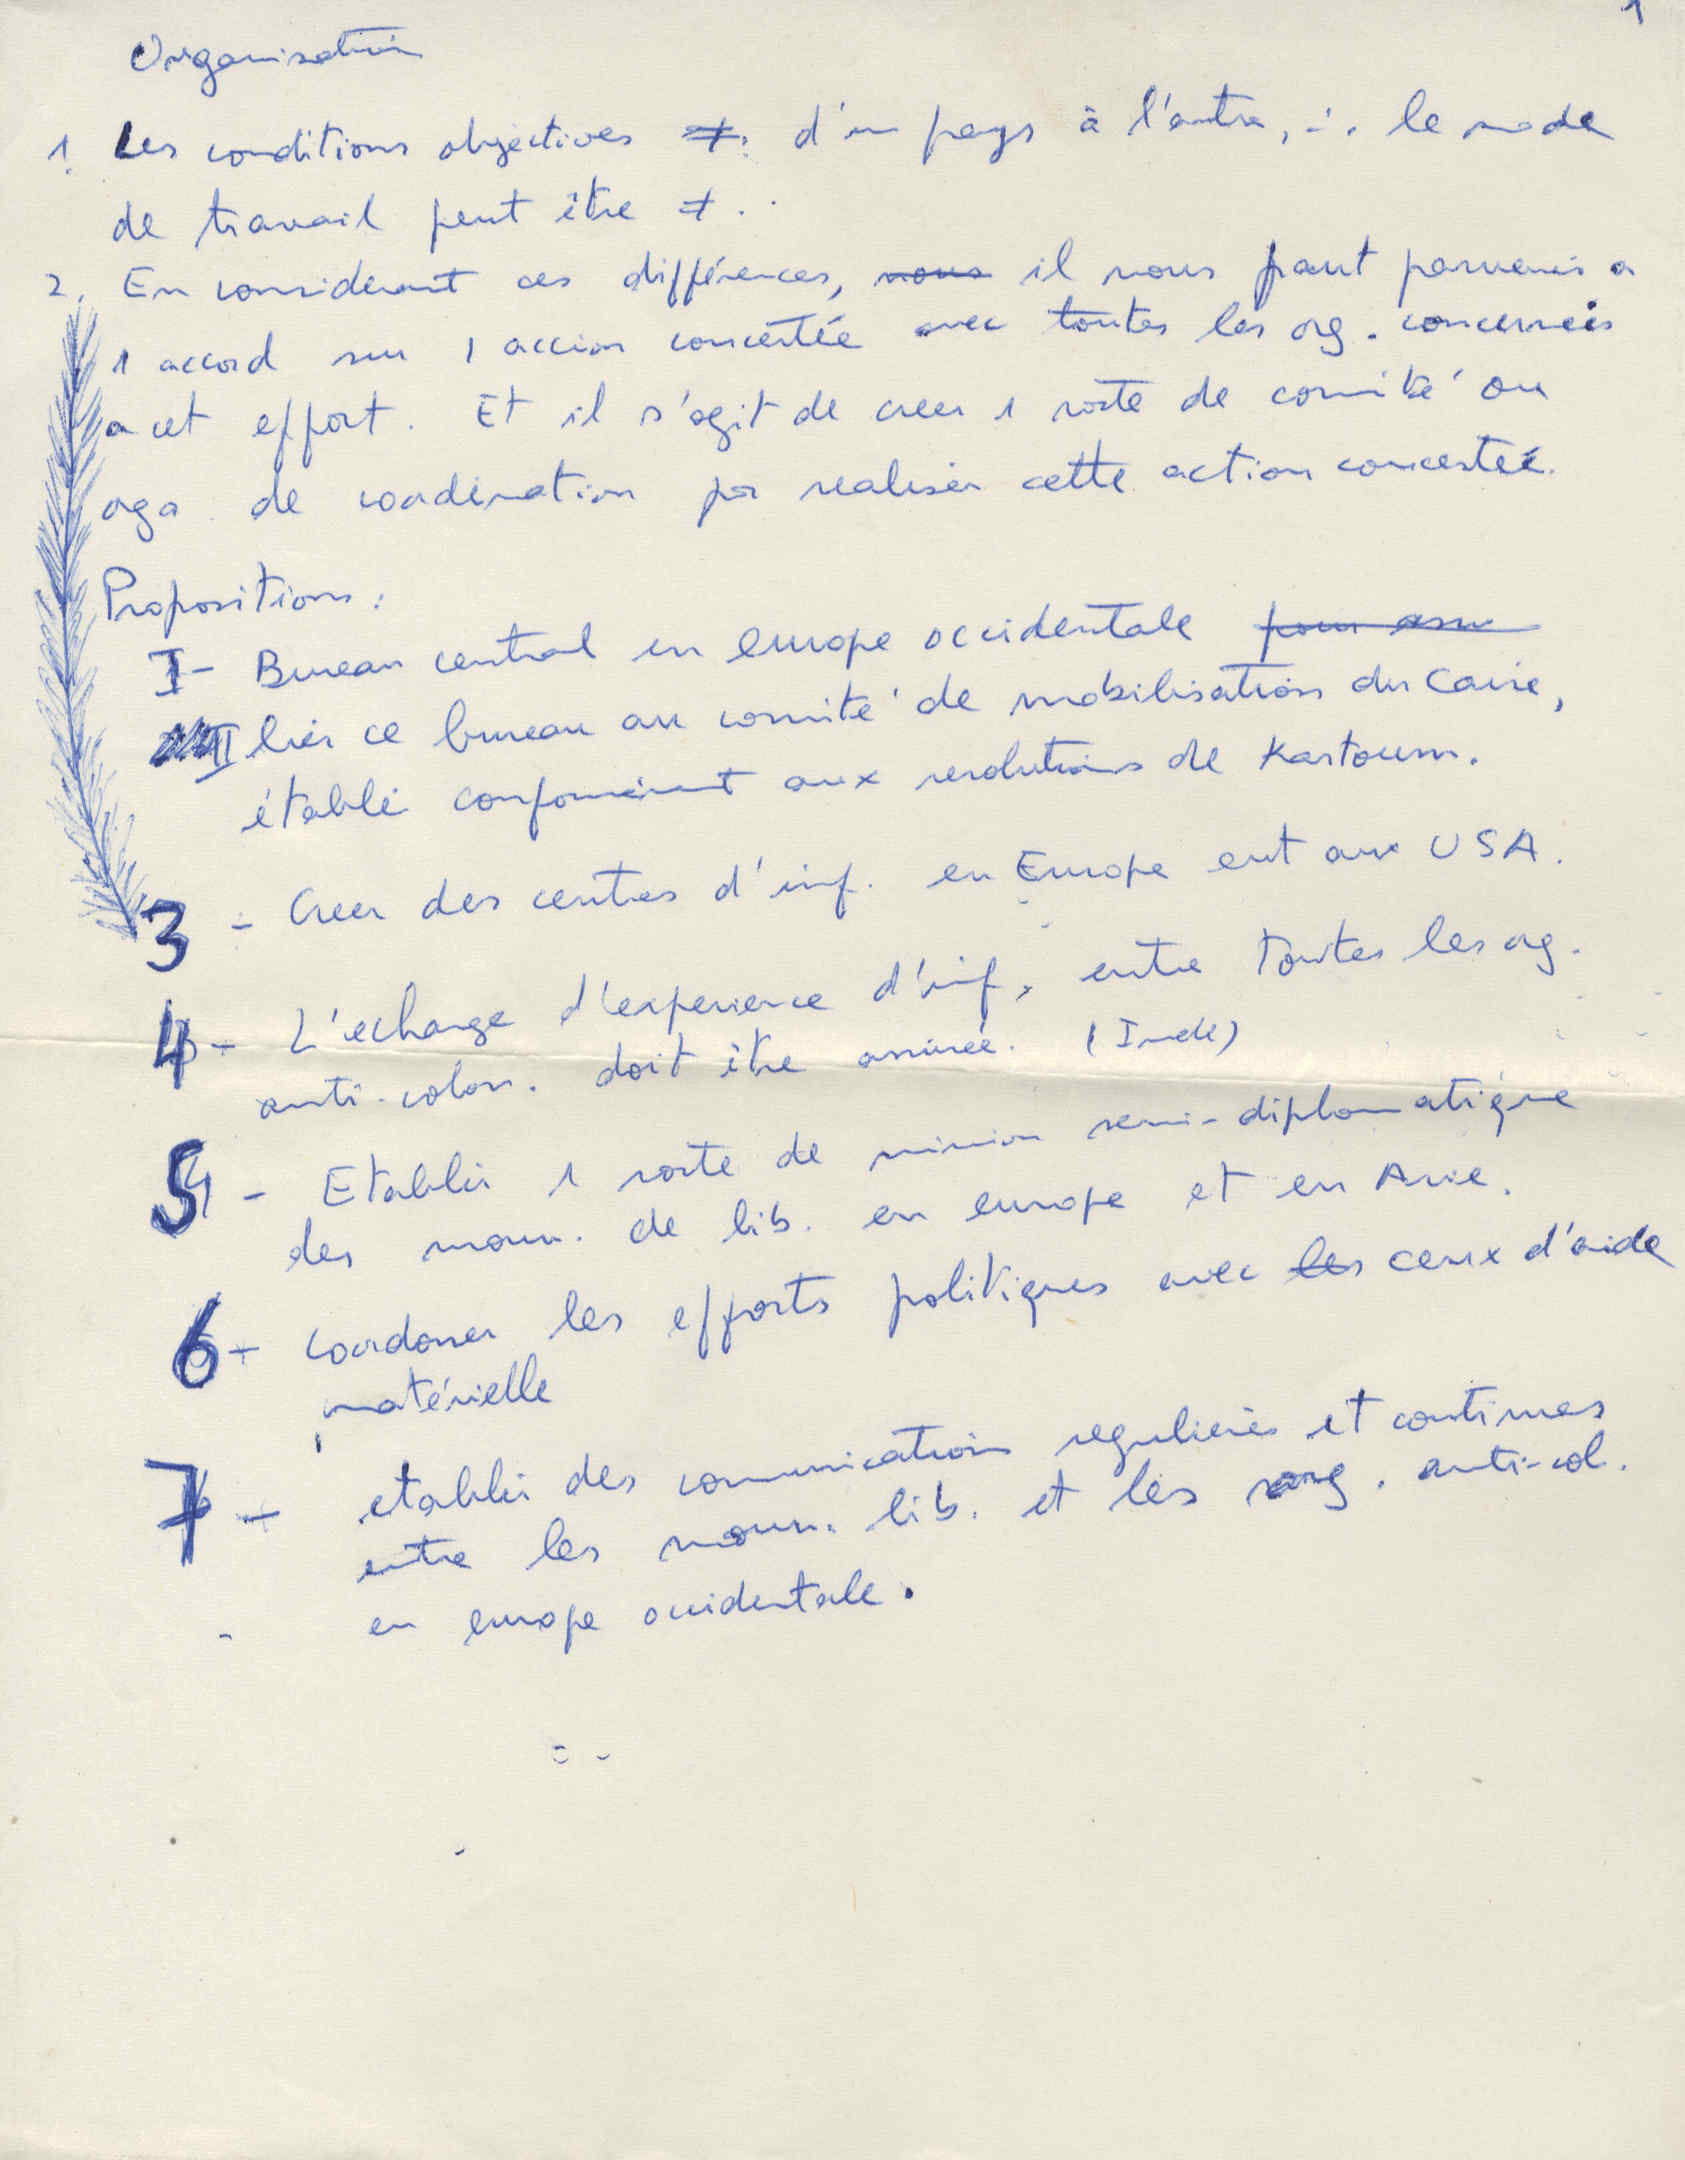 1
Organisation
1. Les conditions objectives ≠. d'un pays à l'autre, ∴ le mode
de travail peut être ≠.
2. En considerant ces différences, nous il nous faut parvenir a
1 accord sur 1 accion concertée avec toutes les org. concernées
a cet effort. Et il s'agit de creer 1 sorte de comité ou
orga. de coordination pr realiser cette action concertée.
Propositions:
I- Bureau central en europe occidentale pour assu
II lier ce bureau au comité de mobilisation du Caire,
établi conformément aux resolutions de Kartoum.
3 - Creer des centres d'inf. en Europe ent aux USA.
4 - L'echange d'experience d'inf, entre toutes les org.
anti-colon. doit être assurée. (Inde)
5 - Etablir 1 sorte de mission semi-diplomatique
des mouv. de lib. en europe et en Asie.
6 - coordoner les efforts politiques avec les ceux d'aide
matérielle
7 - etablir des communications regulieres et continues
entre les mouv. lib. et les org. anti-col.
en europe occidentale.